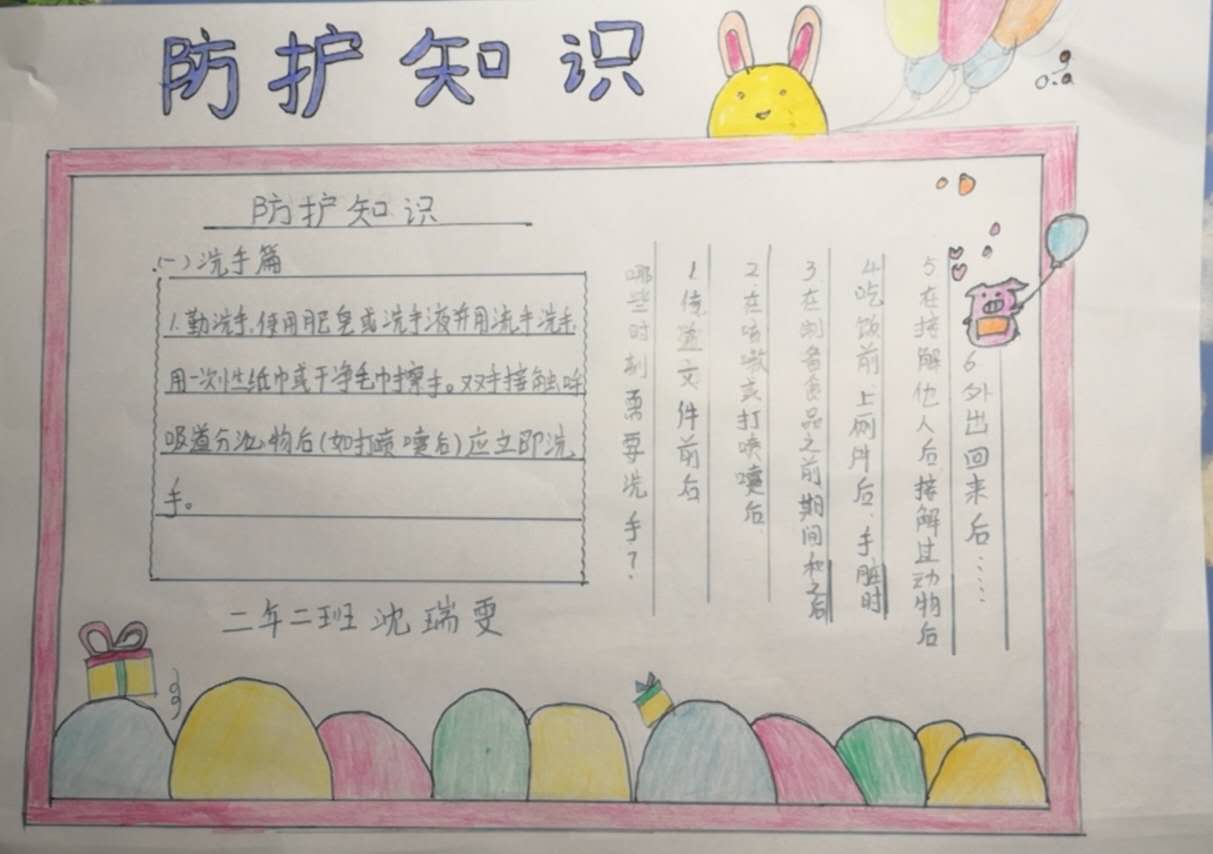 防护知识
防护知识
(一)洗手篇
1.勤洗手.使用肥皂或洗手液并用流手洗手,
用一次性纸巾或干净毛巾擦手。双手接触呼
吸道分泌物后(如打喷嚏后)应立即洗
手。
二年二班 沈瑞雯
哪些时刻需要洗手?
1.传递文件前后
2.在咳嗽或打喷嚏后.
3.在制备食品之前期间和之后
4.吃饭前、上厕所后、手脏时
5.在接解他人后接解过动物后
6.外出回来后……